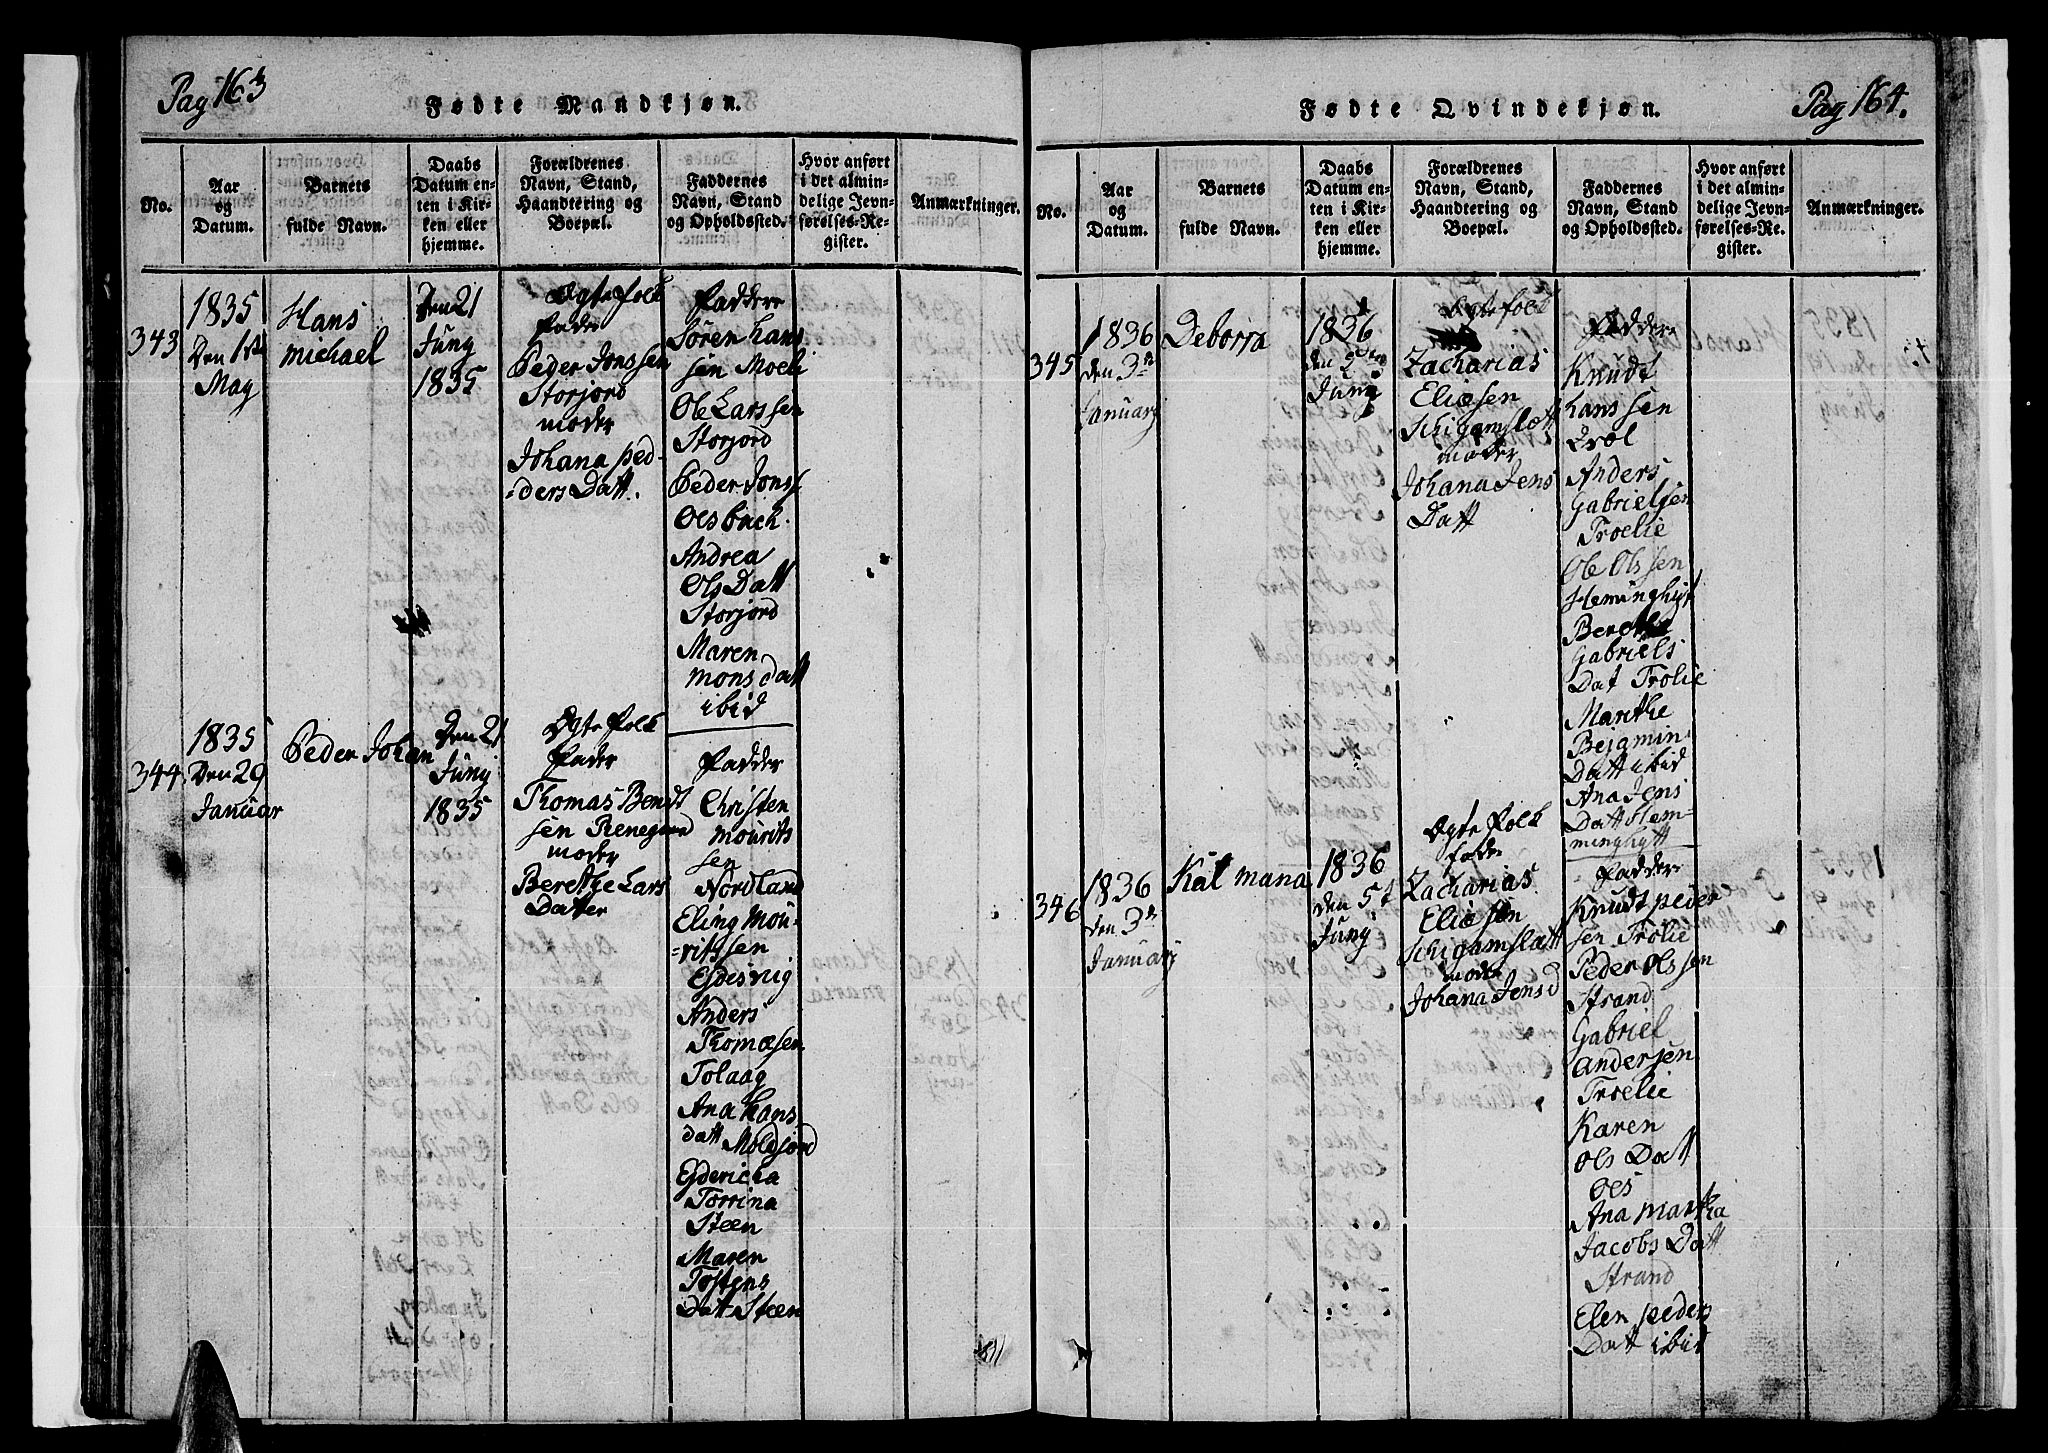 Pag 163
Fødte Mandkjøn.
No.
Aar
og
Datum.
Barnets
fulde Navn.
Daabs
Datum en-
ten i Kir-
ken eller
hjemme.
Forældrenes
Navn, Stand,
Haandtering og
Boepæl.
Faddernes
Navn, Stand
og Opholdssted.
Hvor anført
i det almin-
delige Jevn-
førelses-Re-
gister.
Anmærkninger.
343
1835
Den 1ste
May
Hans
michael
Den 21
Juny
1835
Ægte folk
fader
Peder Jonssen
Storjord
moder
Johana ped-
ders Datt.
faddere
Sören hans
sen Moeli
Ole Larssen
Storjord
Peder Jonss
Olsbach
Andrea
Ols Datt
Storjord
Maren
mons datt
ibid
344
1835
Den 29
Januar
Peder Johan
Den 21
Juny
1835
Ægte folk
fader
Thomas Bendt
sen Renegaard
moder
Berethe Lars
Datter
fadder
Christen
mourits
sen
Nordland
Eling Mou-
ritssen
Ejdesvig
Anders
Thomæsen
Tolaag
Ana hans
datt Moldjord
Ejdericka
Torrina
Steen
Maren
Tostens
Datt Steen
Pag 164.
Fødte Qvindekjøn.
No.
Aar
og
Datum.
Barnets
fulde Navn.
Daabs
Datum en-
ten i Kir-
ken eller
hjemme.
Forældrenes
Navn, Stand,
Haandtering og
Boepæl.
Faddernes
Navn, Stand
og Opholdssted.
Hvor anført
i det almin-
delige Jevn-
førelses-Re-
gister.
Anmærkninger.
345
1836
den 3
January
Deborra
1836
den 2
Juny
Ægte folk
Zacharias
Eliæsen
Schigamslætt
moder
Johana Jens
Datt
faddere
Knudt
hanssen
Anders
Gabrielsen
Troelie
Ole Olssen
Heminghytt
Berethe
Gabriels
Dat Trolie
Marthe
Bejgmin
Datt ibid
Ana Jens
Datt Hem-
minghytt
346
1836
den 3
January
Kat mana
1836
den 5t
Juny
Ægte folk
fader
Zacharias
Eliæsen
Schigamslætt
moder
Johana Jensd
faddere
Knudt peder
sen Trolie
Peder Olssen
Strand
Gabriel
andersen
Troelie
Karen
Ols Datt
Oes
Ana martha
Jacobs Datt
Strand
Elen peders
Datt ibid